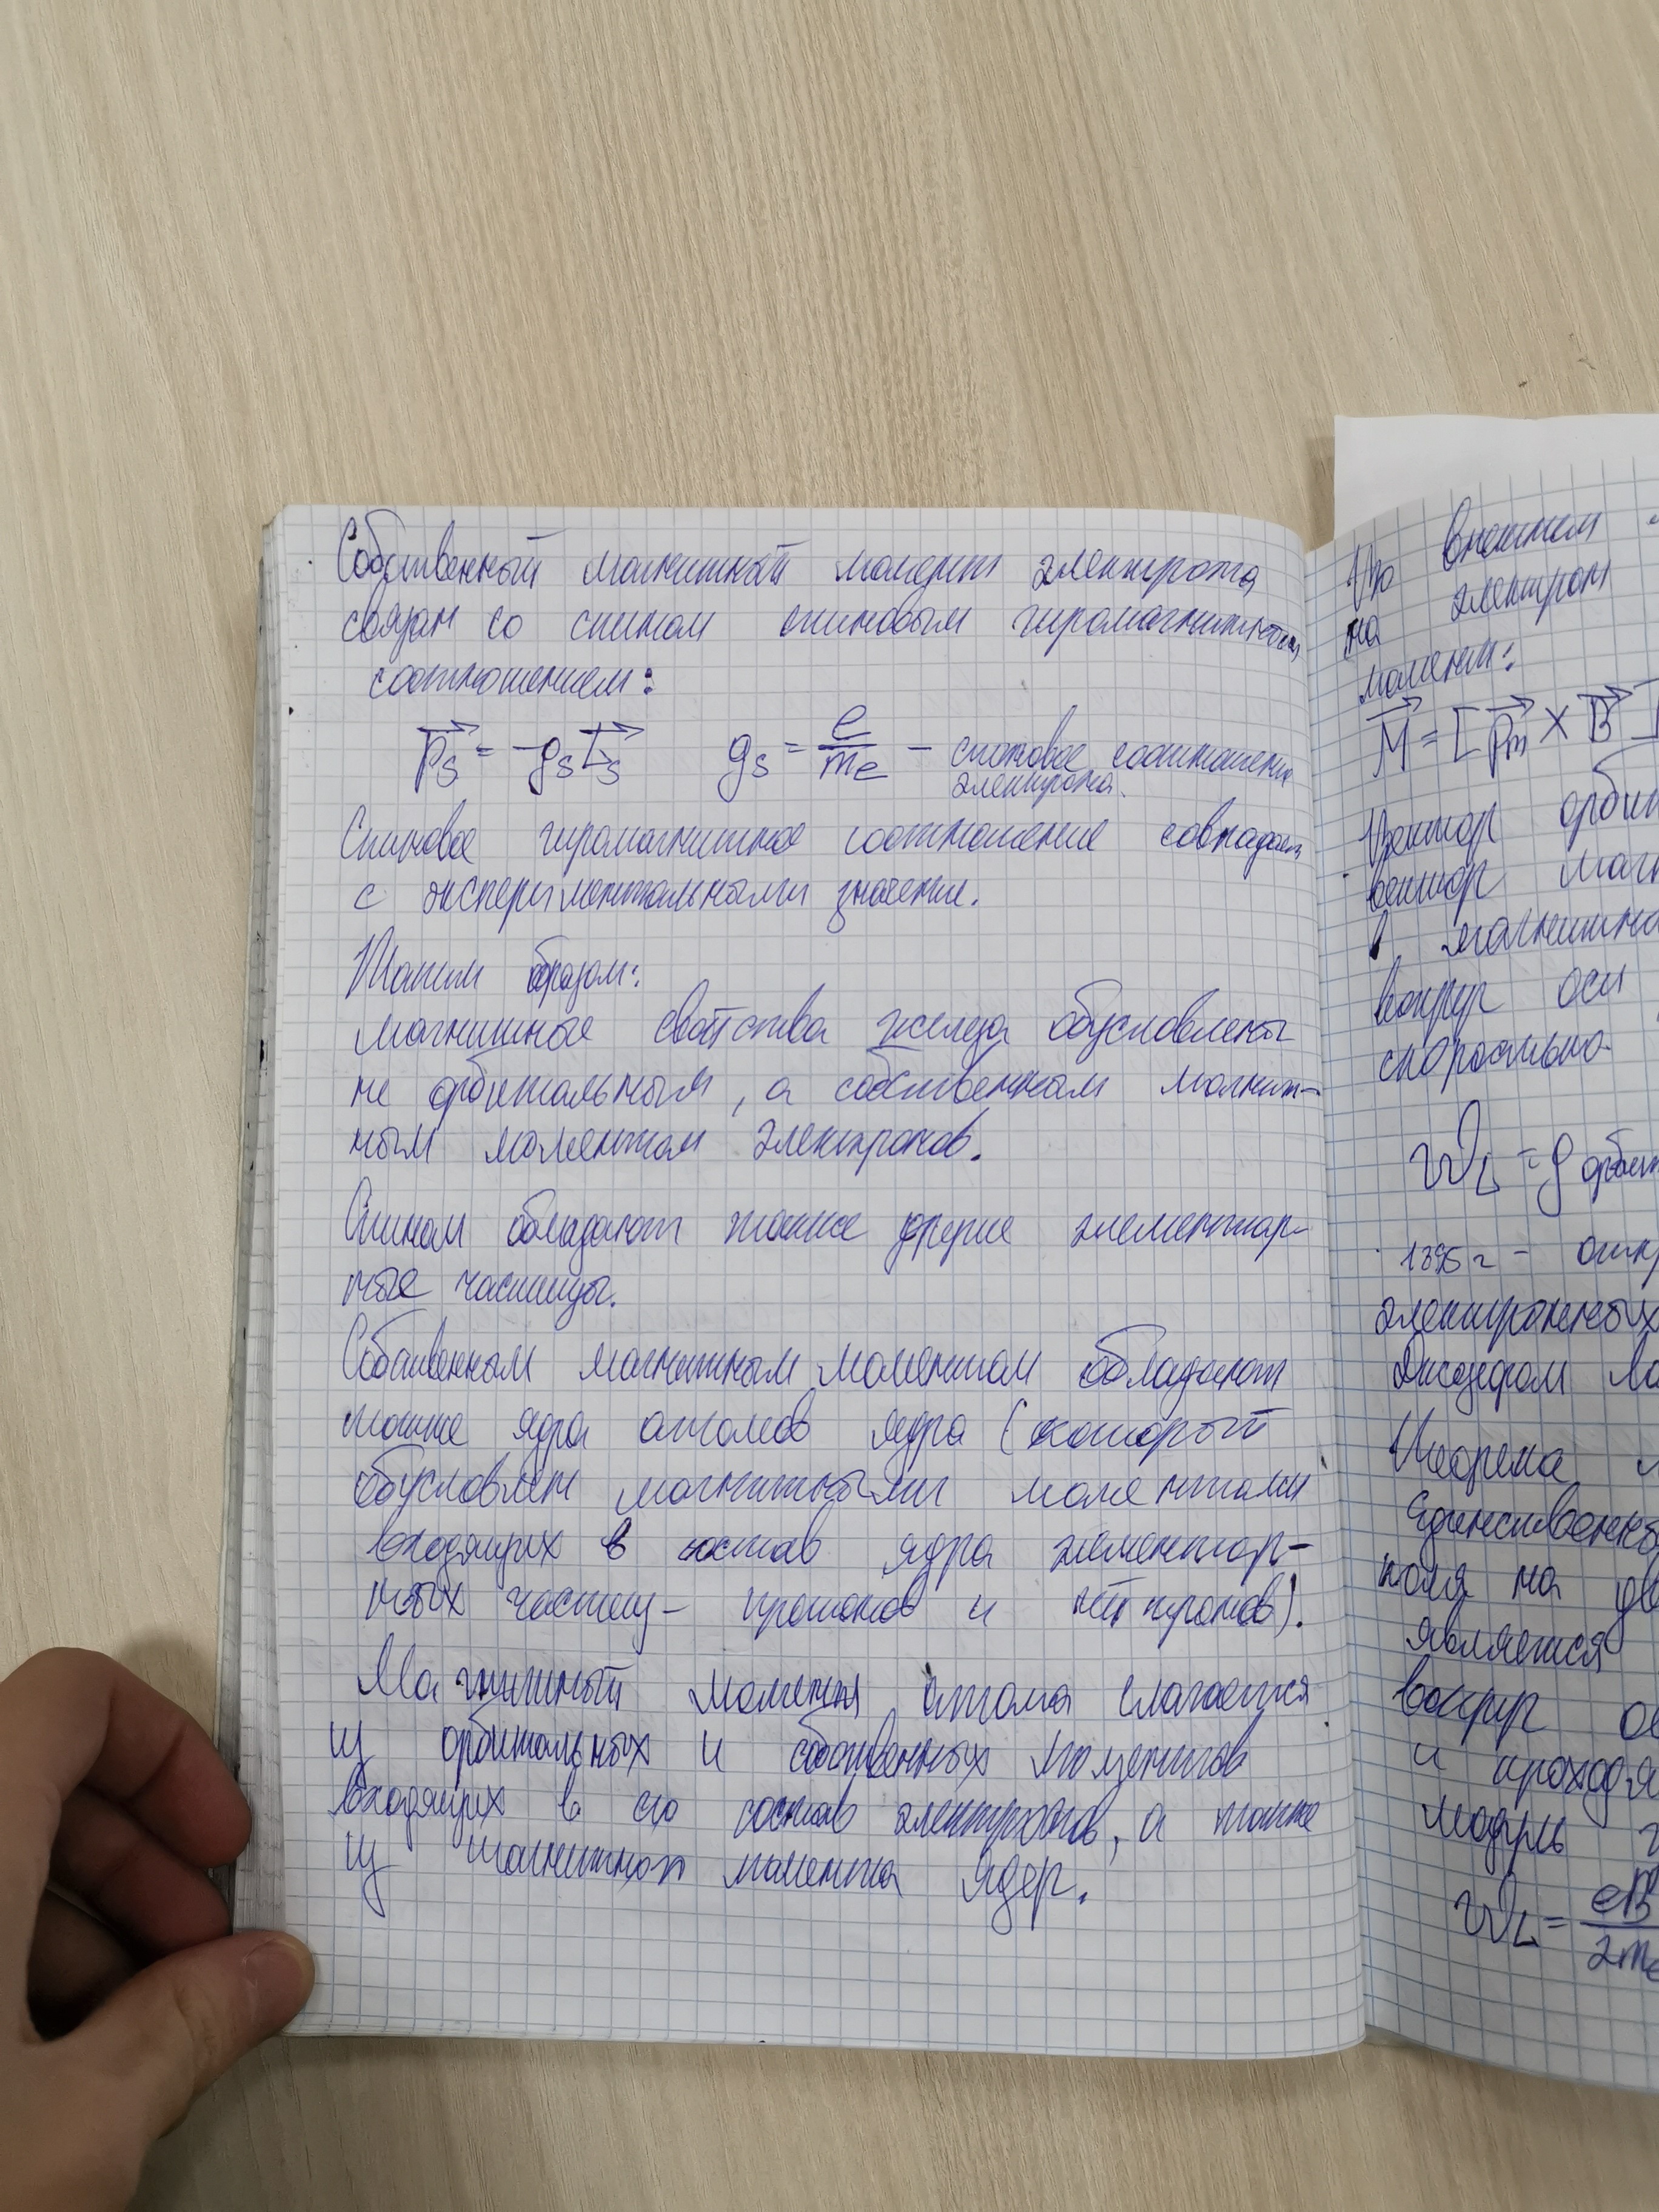 Собственный магнитный момент электрона
связан со спином спиновым гиромагнитным
соотношением:
p⃗s = -gs L⃗s   gs = e/me - спиновое соотношение
электрона.
Спиновое гиромагнитное соотношение совпадает
с экспериментальными значение.
Таким образом:
магнитные свойства железа обусловлены
не орбитальным, а собственным магнит-
ным моментом электронов.
Спином обладают также другие элементар-
ные частицы.
Собственным магнитным моментом обладают
также ядра атомов ядра (который
обусловлен магнитными моментами
входящих в состав ядра элементар-
ных частиц - протонов и нейтронов).
Магнитный момент атома слагается
из орбитальных и собственных моментов
входящих в его состав электронов, а также
из магнитного момента ядер.
Во внешнем
на электрон
момент:
M⃗ = [p⃗m × B⃗]
Вектор орбит
вектор магн
в магнитно
вокруг оси
скоростью.
ωL = g орбит
1895г - откр
электронных
Джозефом Ла
Теорема
Единственно
поля на дв
является
вокруг ос
и проходя
модуль
ωL = eB/2me